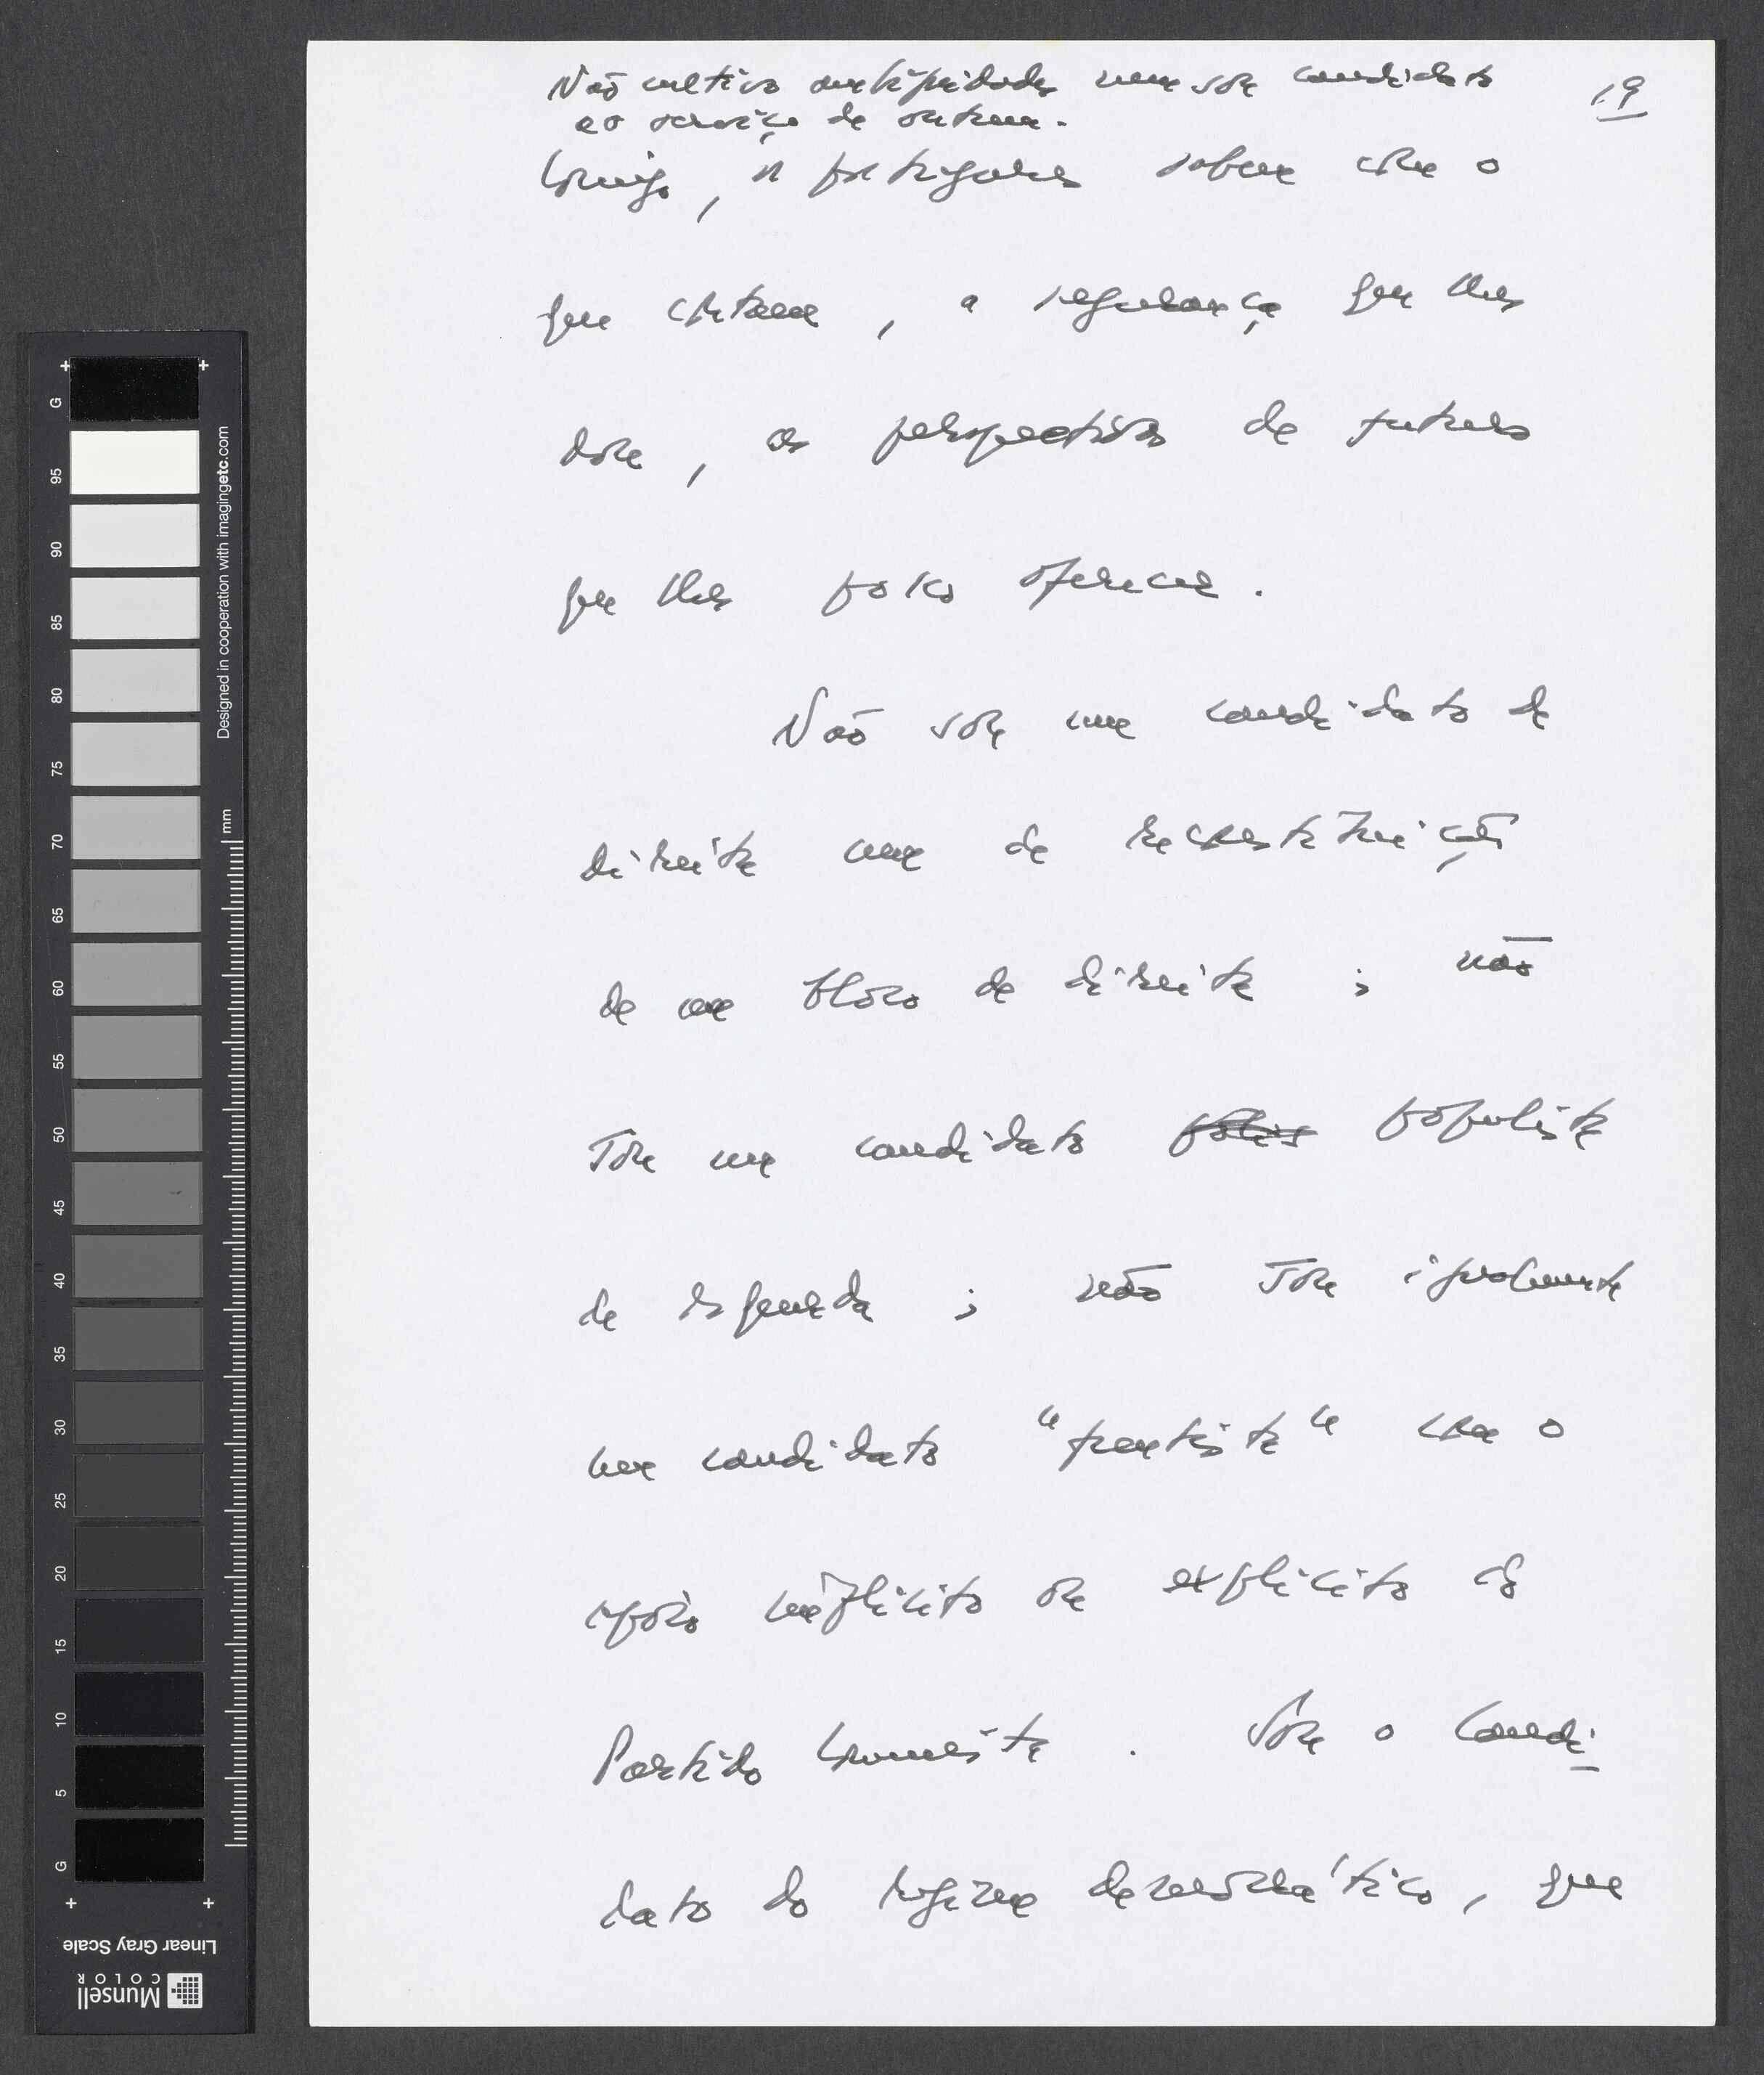 Não cultivo ambiguidades nem sou candidato
ao serviço de outrem.
19
Comigo, os portugueses sabem com o
que contam, a segurança que lhes
dou, as perspectivas de futuro
que lhes posso oferecer.
Não sou um candidato de
direita nem de reconstituição
de um bloco de direita; não
sou um candidato populista
de esquerda; não sou igualmente
um candidato "frentista" com o
apoio implícito ou explícito do
Partido Comunista. Sou o candi-
dato do regime democrático, que
G
95
90
85
80
75
70
65
60
55
50
45
40
35
30
25
20
15
10
5
G
Designed in cooperation with imagingetc.com
mm
Linear Gray Scale
Munsell
COLOR